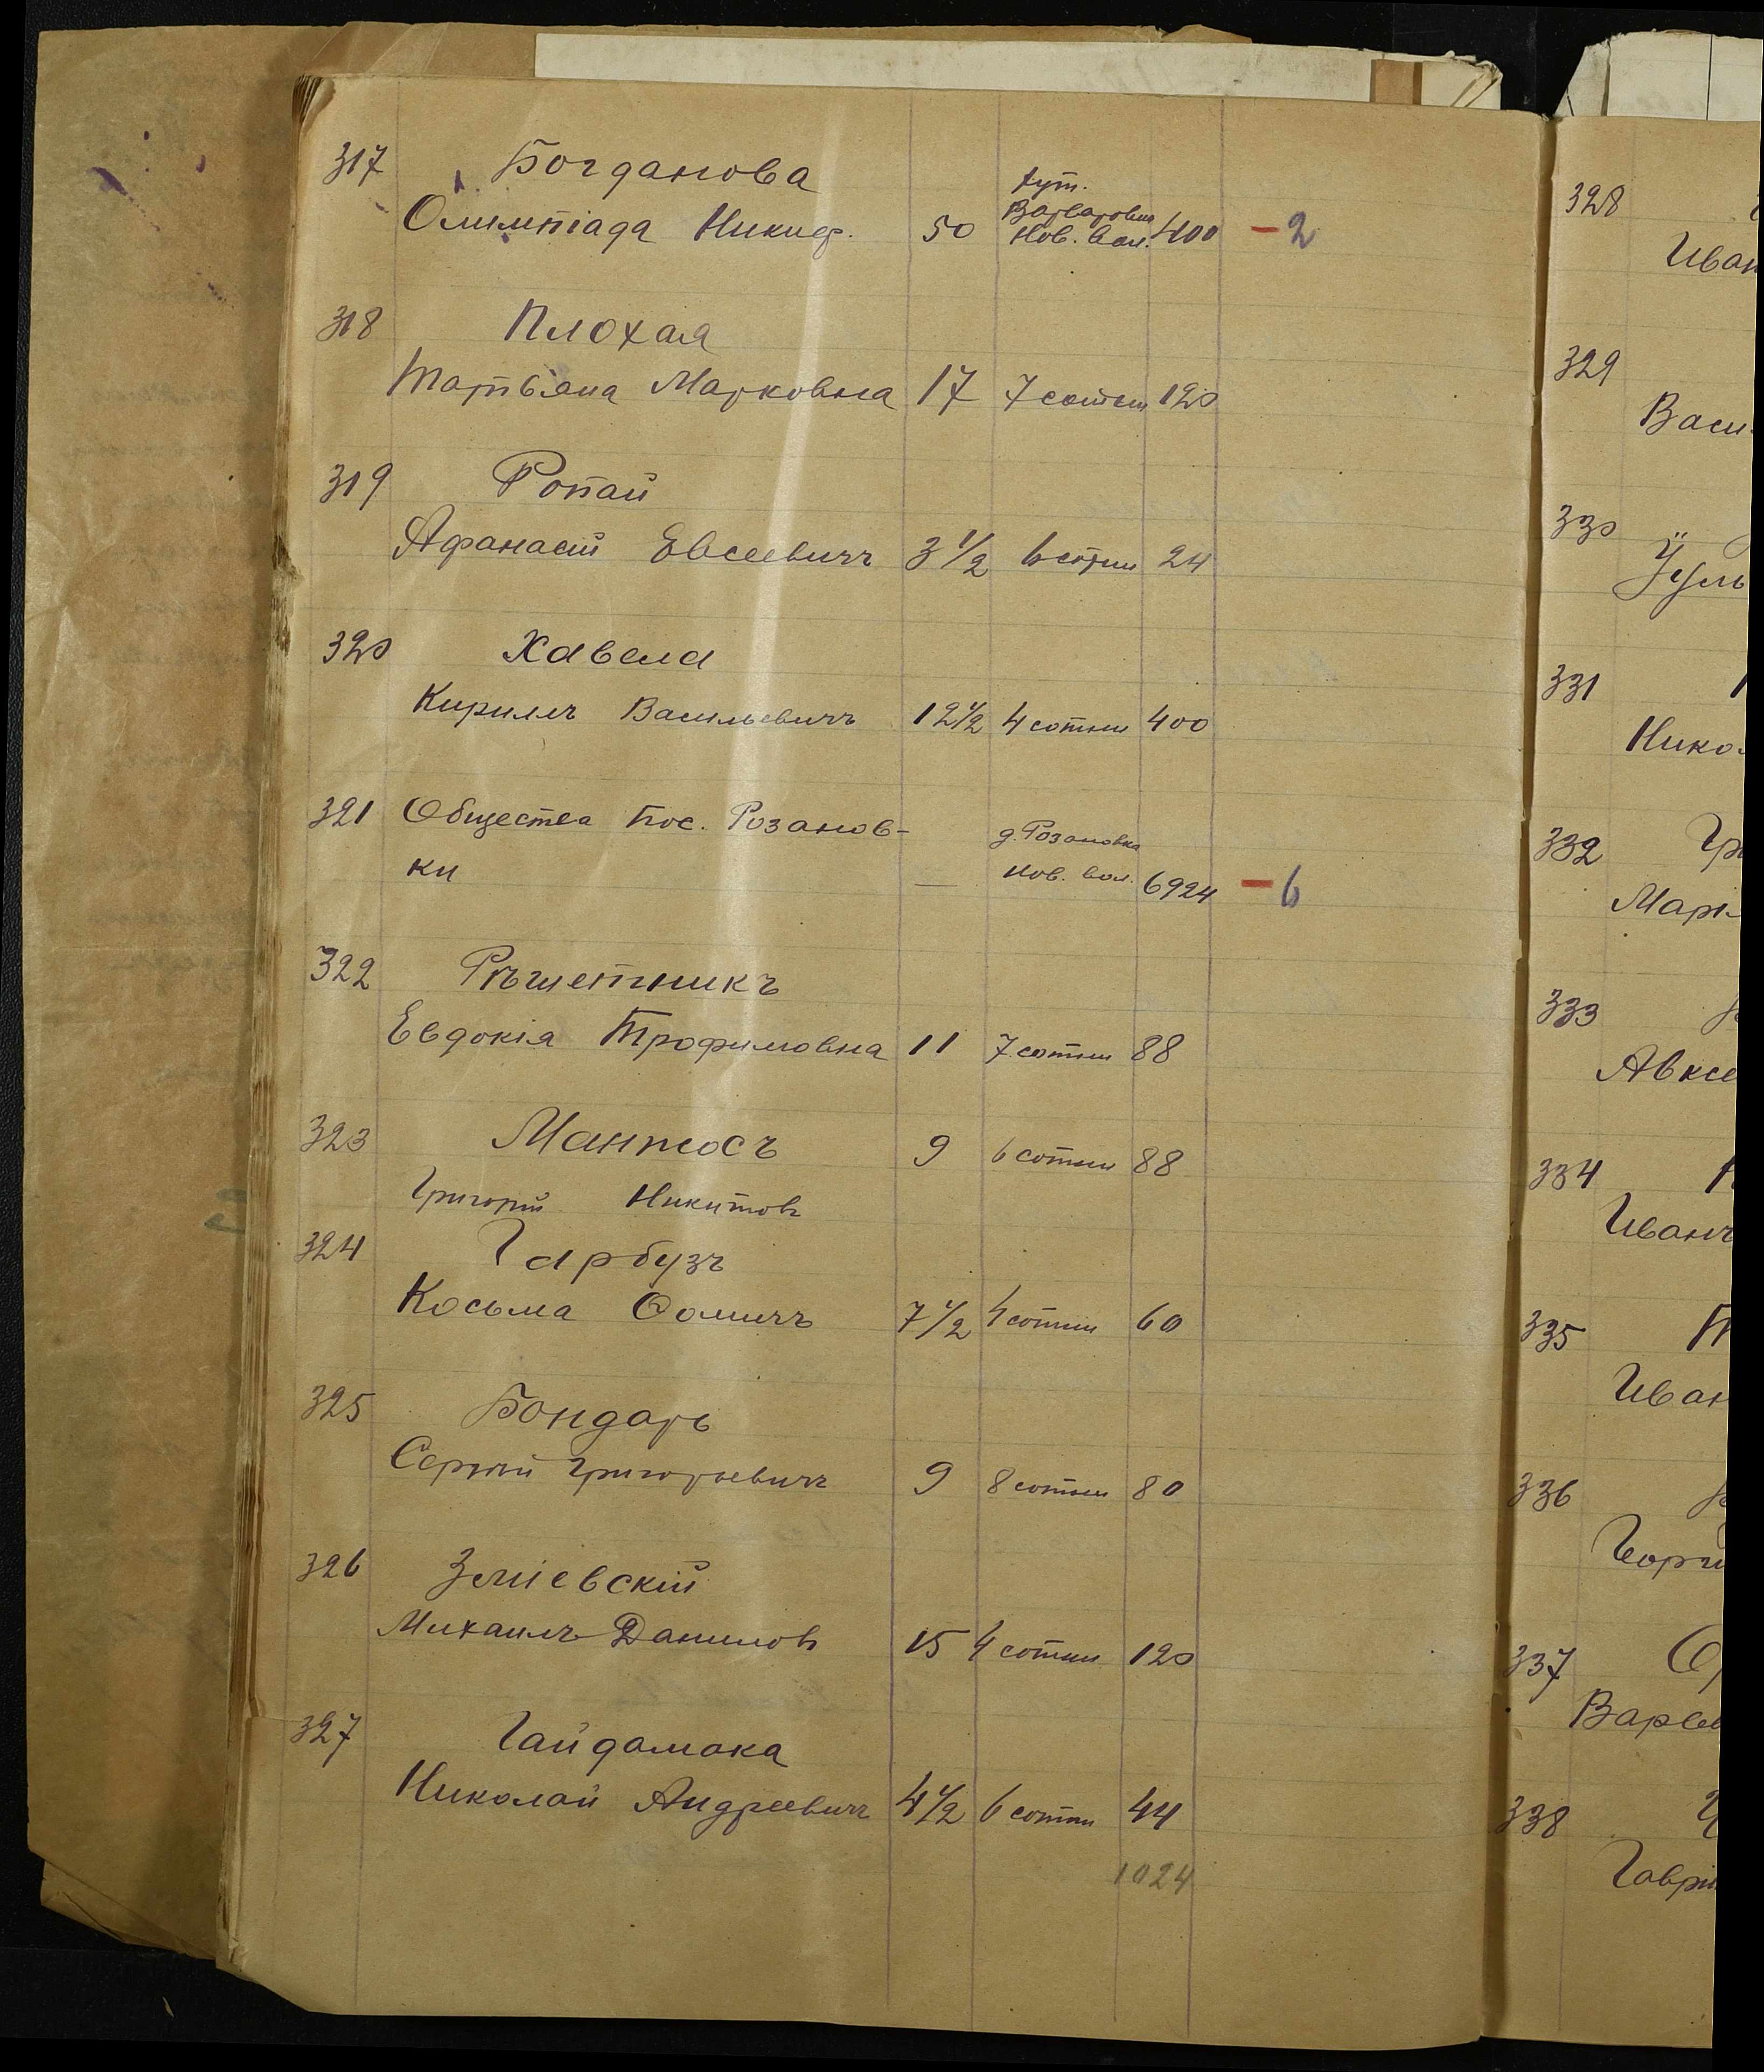 317 Богданова
хут.
Варваровка
Олимпіада Никиф. 50 Нов. вол. 400 - 2
318 Плохая
Татьяна Марковна 17 7 сотни 120
319 Ропай
Афанасій Евсеевичъ 3 1/2 6 сотни 24
320 Хавела
Кириллъ Васильевичъ 12 1/2 4 сотни 400
321 Общества пос. Розанов-
д. Розановка
ки — Нов. вол. 6924 - 6
322 Рѣшетникъ
Евдокія Трофимовна 11 7 сотни 88
323 Мантосъ 9 6 сотни 88
Григорій Никитовъ
324 Гарбузъ
Косьма Ѳомичъ 7 1/2 4 сотни 60
325 Бондарь
Сергѣй Григорьевичъ 9 8 сотни 80
326 Зміевскій
Михаилъ Даниловъ 15 4 сотни 120
327 Гайдамака
Николай Андреевичъ 4 1/2 6 сотни 44
1024
328
Иван
329
Васи
330
331
Нико
332
Марі
333
Авксе
334
Иванъ
335
Иван
336
337
338
Гаврі